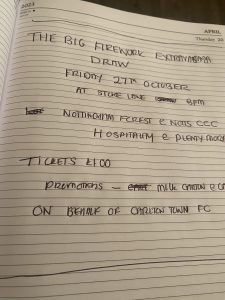 2023
APRIL
Thursday 20
THE BIG FIREWORK EXTRAVAGANZA
DRAW
FRIDAY 27TH OCTOBER
AT STOKE LANE 8PM
NOTTINGHAM FOREST & NOTTS CCC
HOSPITALITY & PLENTY MORE
TICKETS £1.00
PROMOTIONS - MILK CARTON &
ON BEHALF OF CARLTON TOWN FC